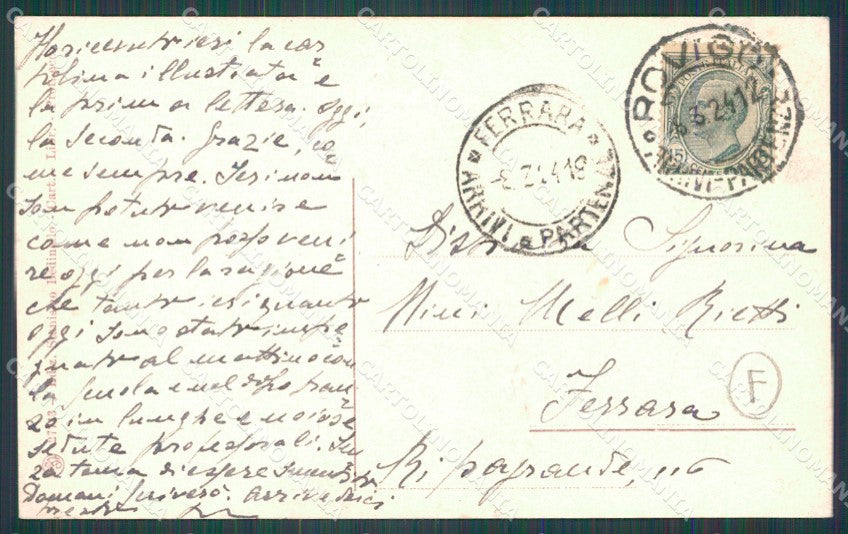 Ho ricevuto ieri la car
tolina illustrata e
la prima lettera. Oggi,
la seconda. Grazie, co
me sempre. Ieri non
son potuto venire
come non posso veni
re oggi per la ragione
che tanto ieri quanto
oggi sono stato impe
gnato al mattino con
la scuola e nel dopo pran
zo in lunghe e noiose
sedute professorali. Sen
za tema di essere smentito
Domani scriverò. Arrivederci
FERRARA
ARRIVI e PARTENZE
ROVIGO
ARRIVI-PARTENZE
Signorina
Mimi Melli Rietti
Ferrara
F
Ripagrande, 116
CARTOLINOMANIA